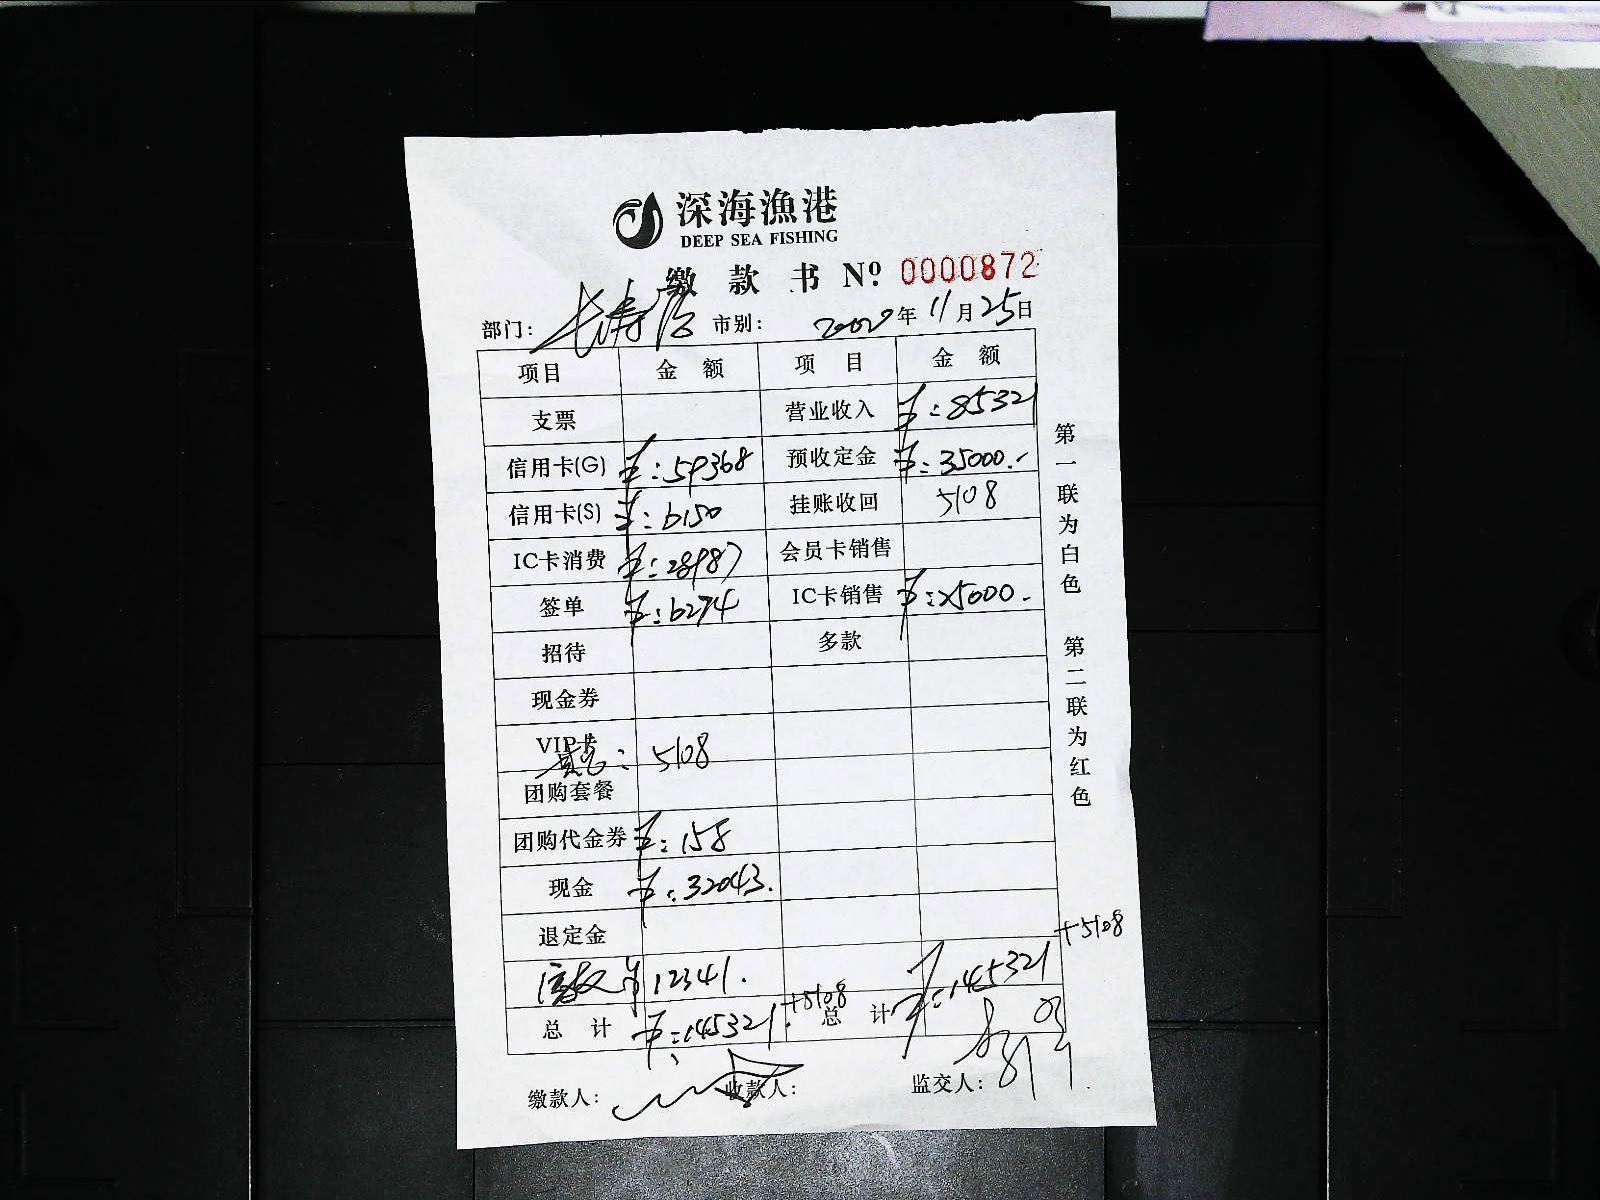 深海漁港
DEEP SEA FISHING
缴 款 书 Nº. 0000872
部门: 长寿店 市别: 2020年 11月25日
项目 金 额 项 目 金 额
支票 营业收入 ¥:85321
信用卡(G) ¥:59368 预收定金 ¥:35000.-
信用卡(S) ¥:6150 挂账收回 5108
IC卡消费 ¥:28987 会员卡销售
签单 ¥:6274 IC卡销售 ¥:25000.
招待 多款
现金券
VIP卡 : 5108
团购套餐
团购代金券 ¥:158
现金 ¥:32043.
退定金
12341.
总 计 ¥:145321. +5108 总 计 ¥:145321 +5108
缴款人: 收款人: 监交人:
第一联为白色 第二联为红色